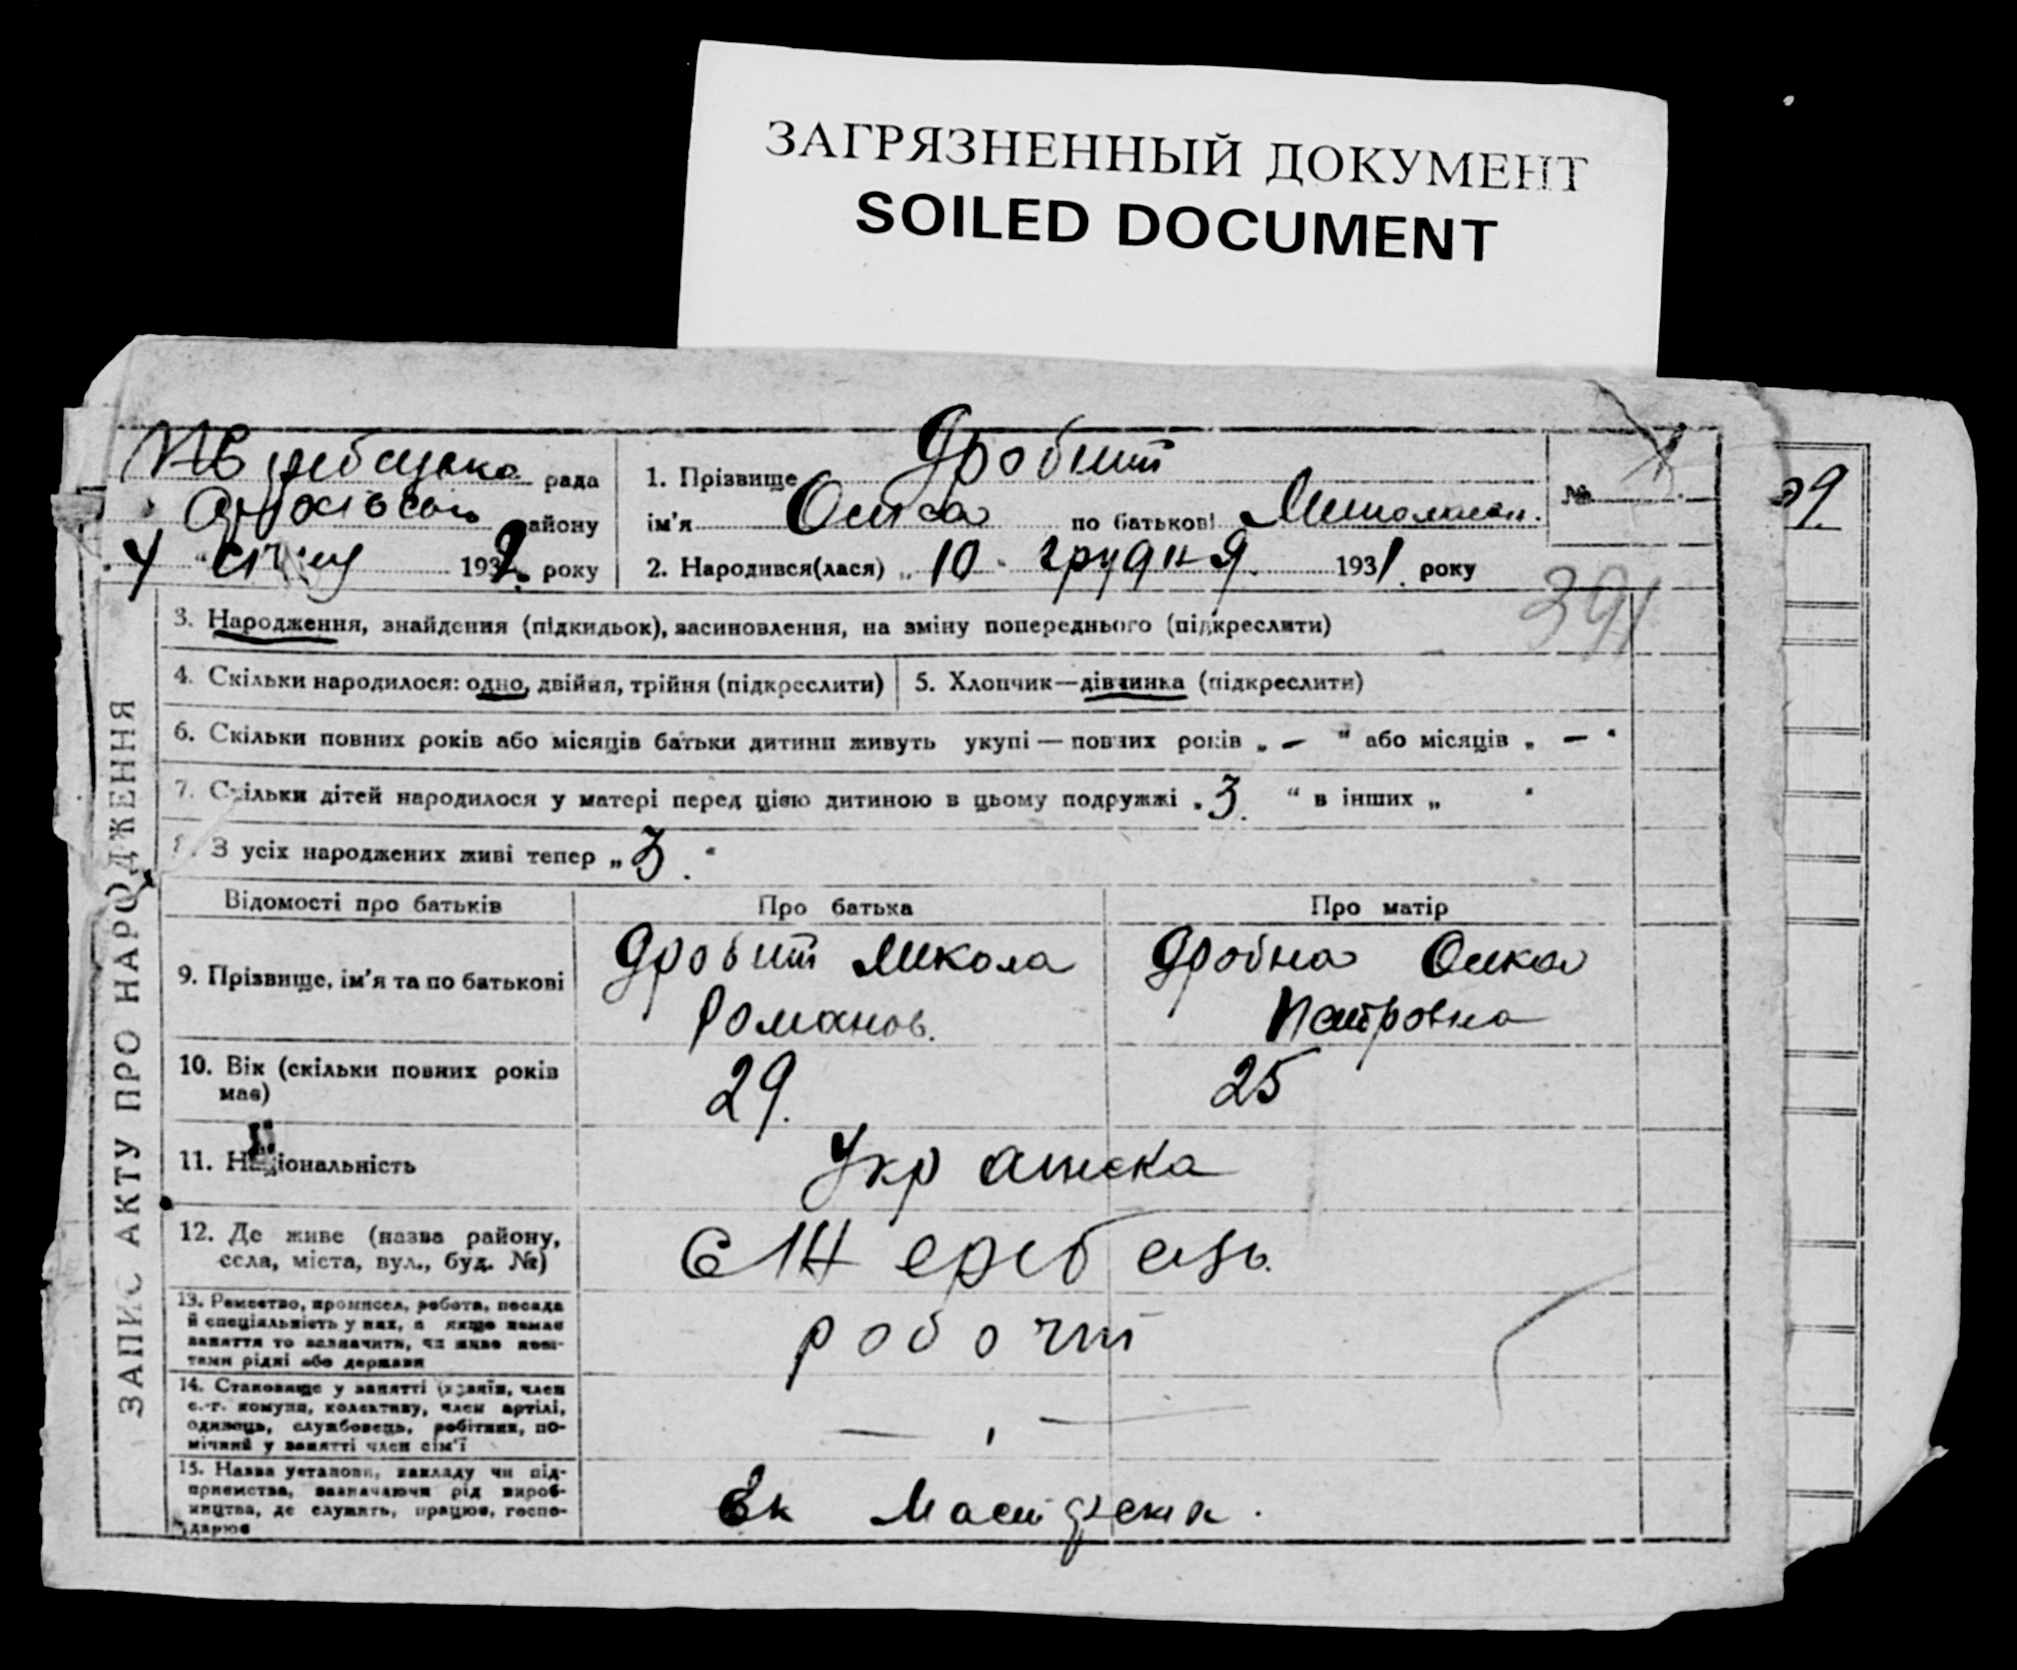 ЗАГРЯЗНЕННЫЙ ДОКУМЕНТ
SOILED DOCUMENT
рада
району
4 " січня 1932 року
1. Прізвище Дробит
ім'я по батькові
2. Народився(лася) „ 10 " грудня 1931. року
№
39.
391
ЗАПИС АКТУ ПРО НАРОДЖЕННЯ
3. Народження, знайдення (підкидьок), засиновлення, на зміну попереднього (підкреслити)
4. Скільки народилося: одно, двійня, трійня (підкреслити)
5. Хлопчик—дівчинка (підкреслити)
6. Скільки повних років або місяців батьки дитини живуть укупі — повних років „ – " або місяців „ – "
7. Скільки дітей народилося у матері перед цією дитиною в цьому подружжі „ 3. " в інших „ "
8. З усіх народжених живі тепер „ 3. "
Відомості про батьків
Про батька
Про матір
9. Прізвище, ім'я та по батькові
Дробит Микола
Романов.
Дробна
Петровна
10. Вік (скільки повних років
має)
29.
25
11. Національність
12. Де живе (назва району,
села, міста, вул., буд. №)
13. Ремество, промисел, робота, посада
й спеціяльність у них, а якщо немає
заняття то зазначити, чи живе кош-
тами рідні або держави
робочий
14. Становище у занятті (хазяїн, член
с.-г. комуни, колективу, член артілі,
одинець, службовець, робітник, по-
мічний у занятті член сім'ї
15. Назва установи, закладу чи під-
приємства, зазначаючи рід вироб-
ництва, де служить, працює, госпо-
дарює